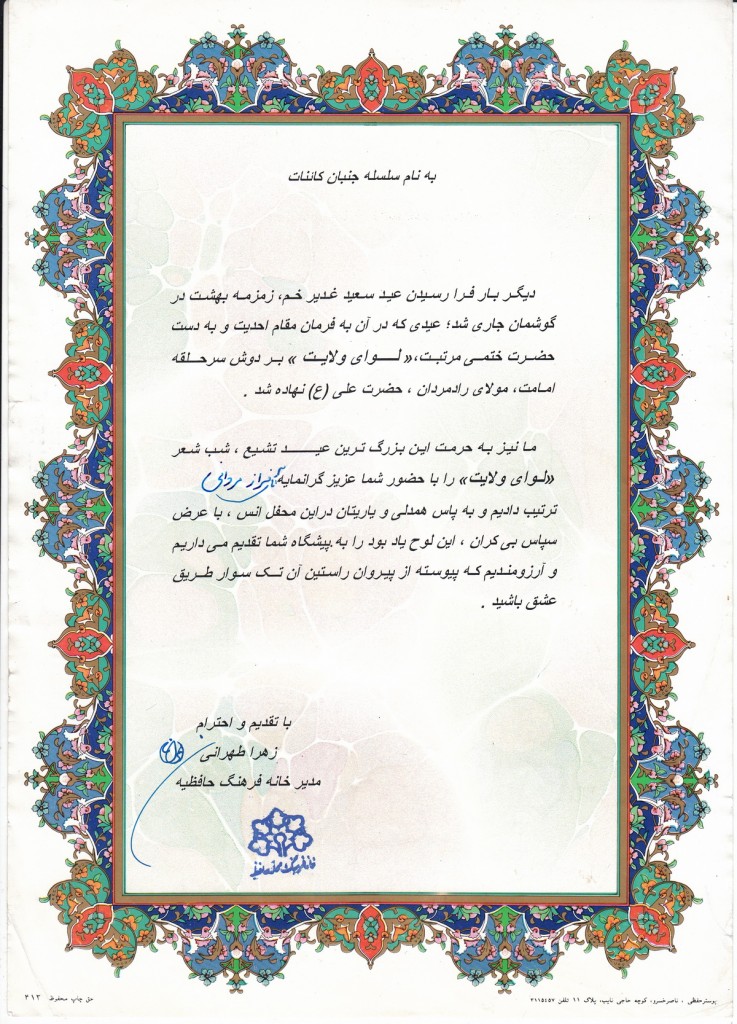 به نام سلسله جنبان کائنات
دیگر بار فرا رسیدن عید سعید غدیر خم، زمزمه بهشت در
گوشمان جاری شد؛ عیدی که در آن به فرمان مقام احدیت و به دست
حضرت ختمی مرتبت،« لوای ولایت » بر دوش سرحلقه
امامت، مولای رادمردان ، حضرت علی (ع) نهاده شد .
ما نیز به حرمت این بزرگ ترین عید تشیع ، شب شعر
«لوای ولایت» را با حضور شما عزیز گرانمایه
ترتیب دادیم و به پاس همدلی و یاریتان دراین محفل انس ، با عرض
سپاس بی کران ، این لوح یاد بود را به پیشگاه شما تقدیم می داریم
و آرزومندیم که پیوسته از پیروان راستین آن تک سوار طریق
عشق باشید .
با تقدیم و احترام
زهرا طهرانی
مدیر خانه فرهنگ حافظیه
حق چاپ محفوظ ۴۱۲
پوسترحفظی ، ناصرخسرو، کوچه حاجی نایب، پلاک ۱۱ تلفن ۳۱۱۵۴۵۷